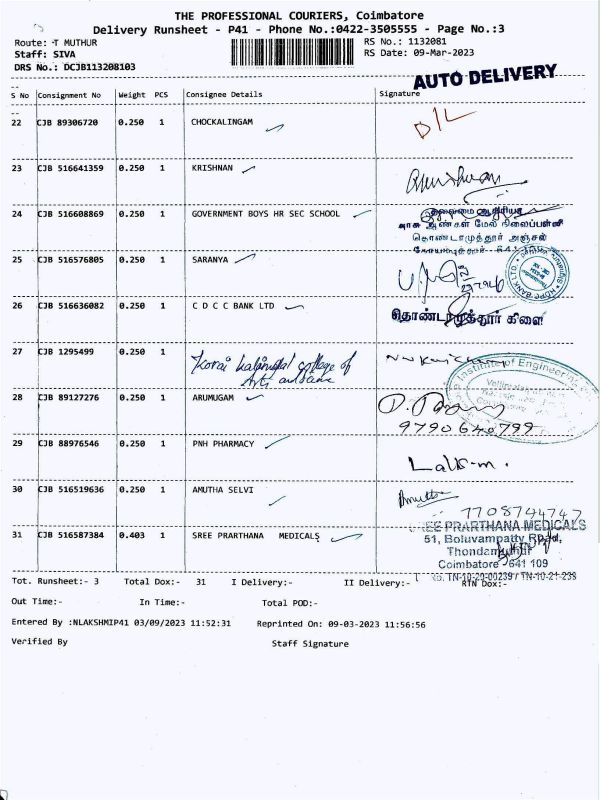 THE PROFESSIONAL COURIERS, Coimbatore
Delivery Runsheet - P41 - Phone No.:0422-3505555 - Page No.:3
Route: T MUTHUR
RS No.: 1132081
Staff: SIVA
RS Date: 09-Mar-2023
DRS No.: DCJB113208103
AUTO DELIVERY
S No Consignment No Weight PCS Consignee Details Signature
22 CJB 89306720 0.250 1 CHOCKALINGAM D/L
23 CJB 516641359 0.250 1 KRISHNAN
24 CJB 516608869 0.250 1 GOVERNMENT BOYS HR SEC SCHOOL
தலைமை ஆசிரியர்
அரசு ஆண்கள் மேல் நிலைப்பள்ளி
தொண்டாமுத்தூர் அஞ்சல்
25 CJB 516576805 0.250 1 SARANYA
26 CJB 516636082 0.250 1 C D C C BANK LTD
தொண்டாமுத்தூர் கிளை
27 CJB 1295499 0.250 1 college of
Institute of Engineering
28 CJB 89127276 0.250 1 ARUMUGAM
9790640799
29 CJB 88976546 0.250 1 PNH PHARMACY
30 CJB 516519636 0.250 1 AMUTHA SELVI
7708744747
31 CJB 516587384 0.403 1 SREE PRARTHANA MEDICALS
SREE PRARTHANA MEDICALS
51, Boluvampatty
Coimbatore - 641 109
TN-10-20-00239 / TN-10-21-239
Tot. Runsheet:- 3 Total Dox:- 31 I Delivery:- II Delivery:- RTN Dox:-
Out Time:- In Time:- Total POD:-
Entered By :NLAKSHMIP41 03/09/2023 11:52:31 Reprinted On: 09-03-2023 11:56:56
Verified By Staff Signature